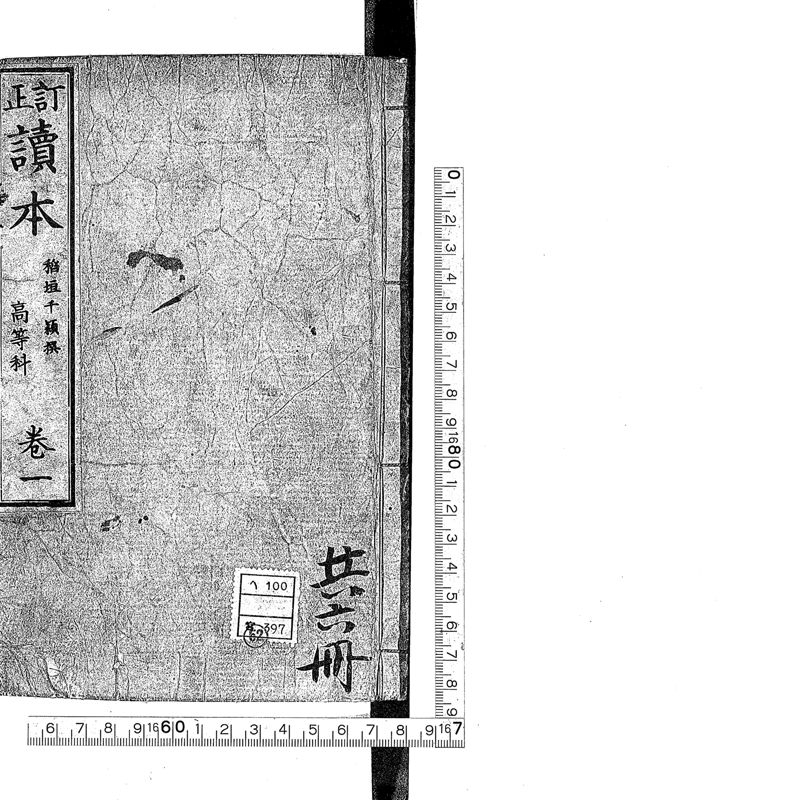 訂正
讀本
稻垣千穎撰
高等科
卷一
共六冊
ヘ 100
397
62
0 1 2 3 4 5 6 7 8 9 16 8 0 1 2 3 4 5 6 7 8 9
6 7 8 9 16 6 0 1 2 3 4 5 6 7 8 9 16 7